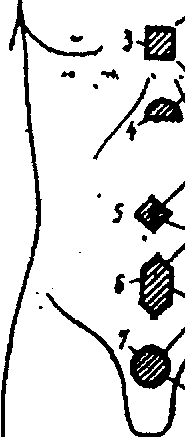 3
4
5
6
7